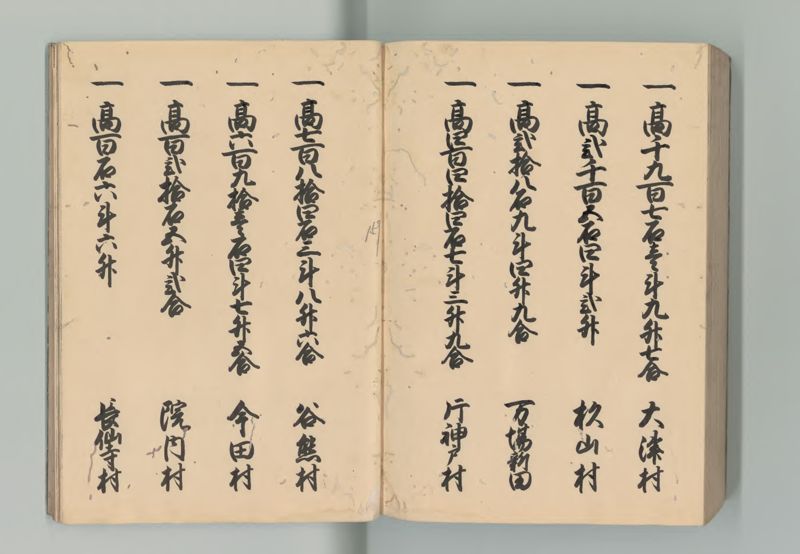 一高千九百七石壱斗九升七合 大津村
一高弐千百五石四斗弐升 杉山村
一高弐拾八石九斗四升九合 万場新田
一高四百四拾四石七斗三升九合 片神戸村
一高七百八拾四石三斗八升六合 谷熊村
一高六百九拾壱石四斗七升五合 今田村
一高百弐拾石五升弐合 院内村
一高百石六斗六升 長仙寺村